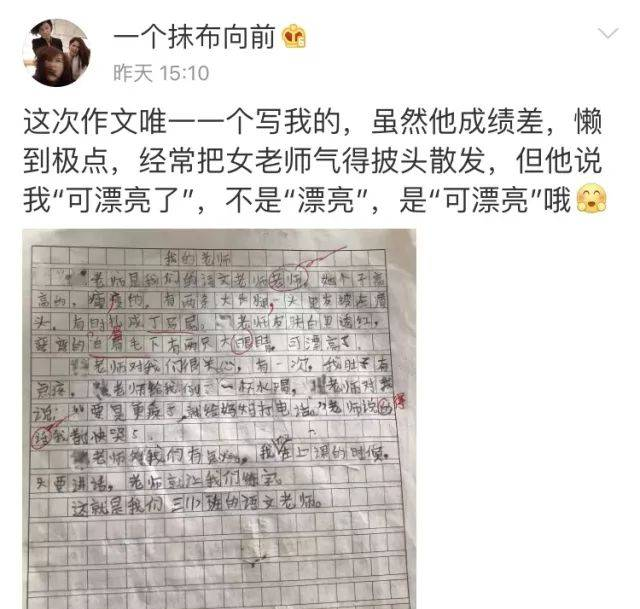 一个抹布向前
昨天 15:10
这次作文唯一一个写我的，虽然他成绩差，懒
到极点，经常把女老师气得披头散发，但他说
我“可漂亮了”，不是“漂亮”，是“可漂亮”哦
我的老师
老师是我们的语文老师老师。她个子高
高的，瘦瘦的，有两条大长腿，一头黑发披在肩
头，有时扎成丁马尾。老师皮肤白里透红，
弯弯的眉毛下有两只大眼睛，可漂亮了
老师对我们很关心，有一次，我肚子有
点疼，老师给我倒了一杯水喝，老师对我
说：“要是更疼了，就给妈妈打电话。”老师说的得
我都快哭了
老师对我们有点，我在上课的时候，
只要讲话，老师就让我们练字。
这就是我们三(1)班的语文老师。